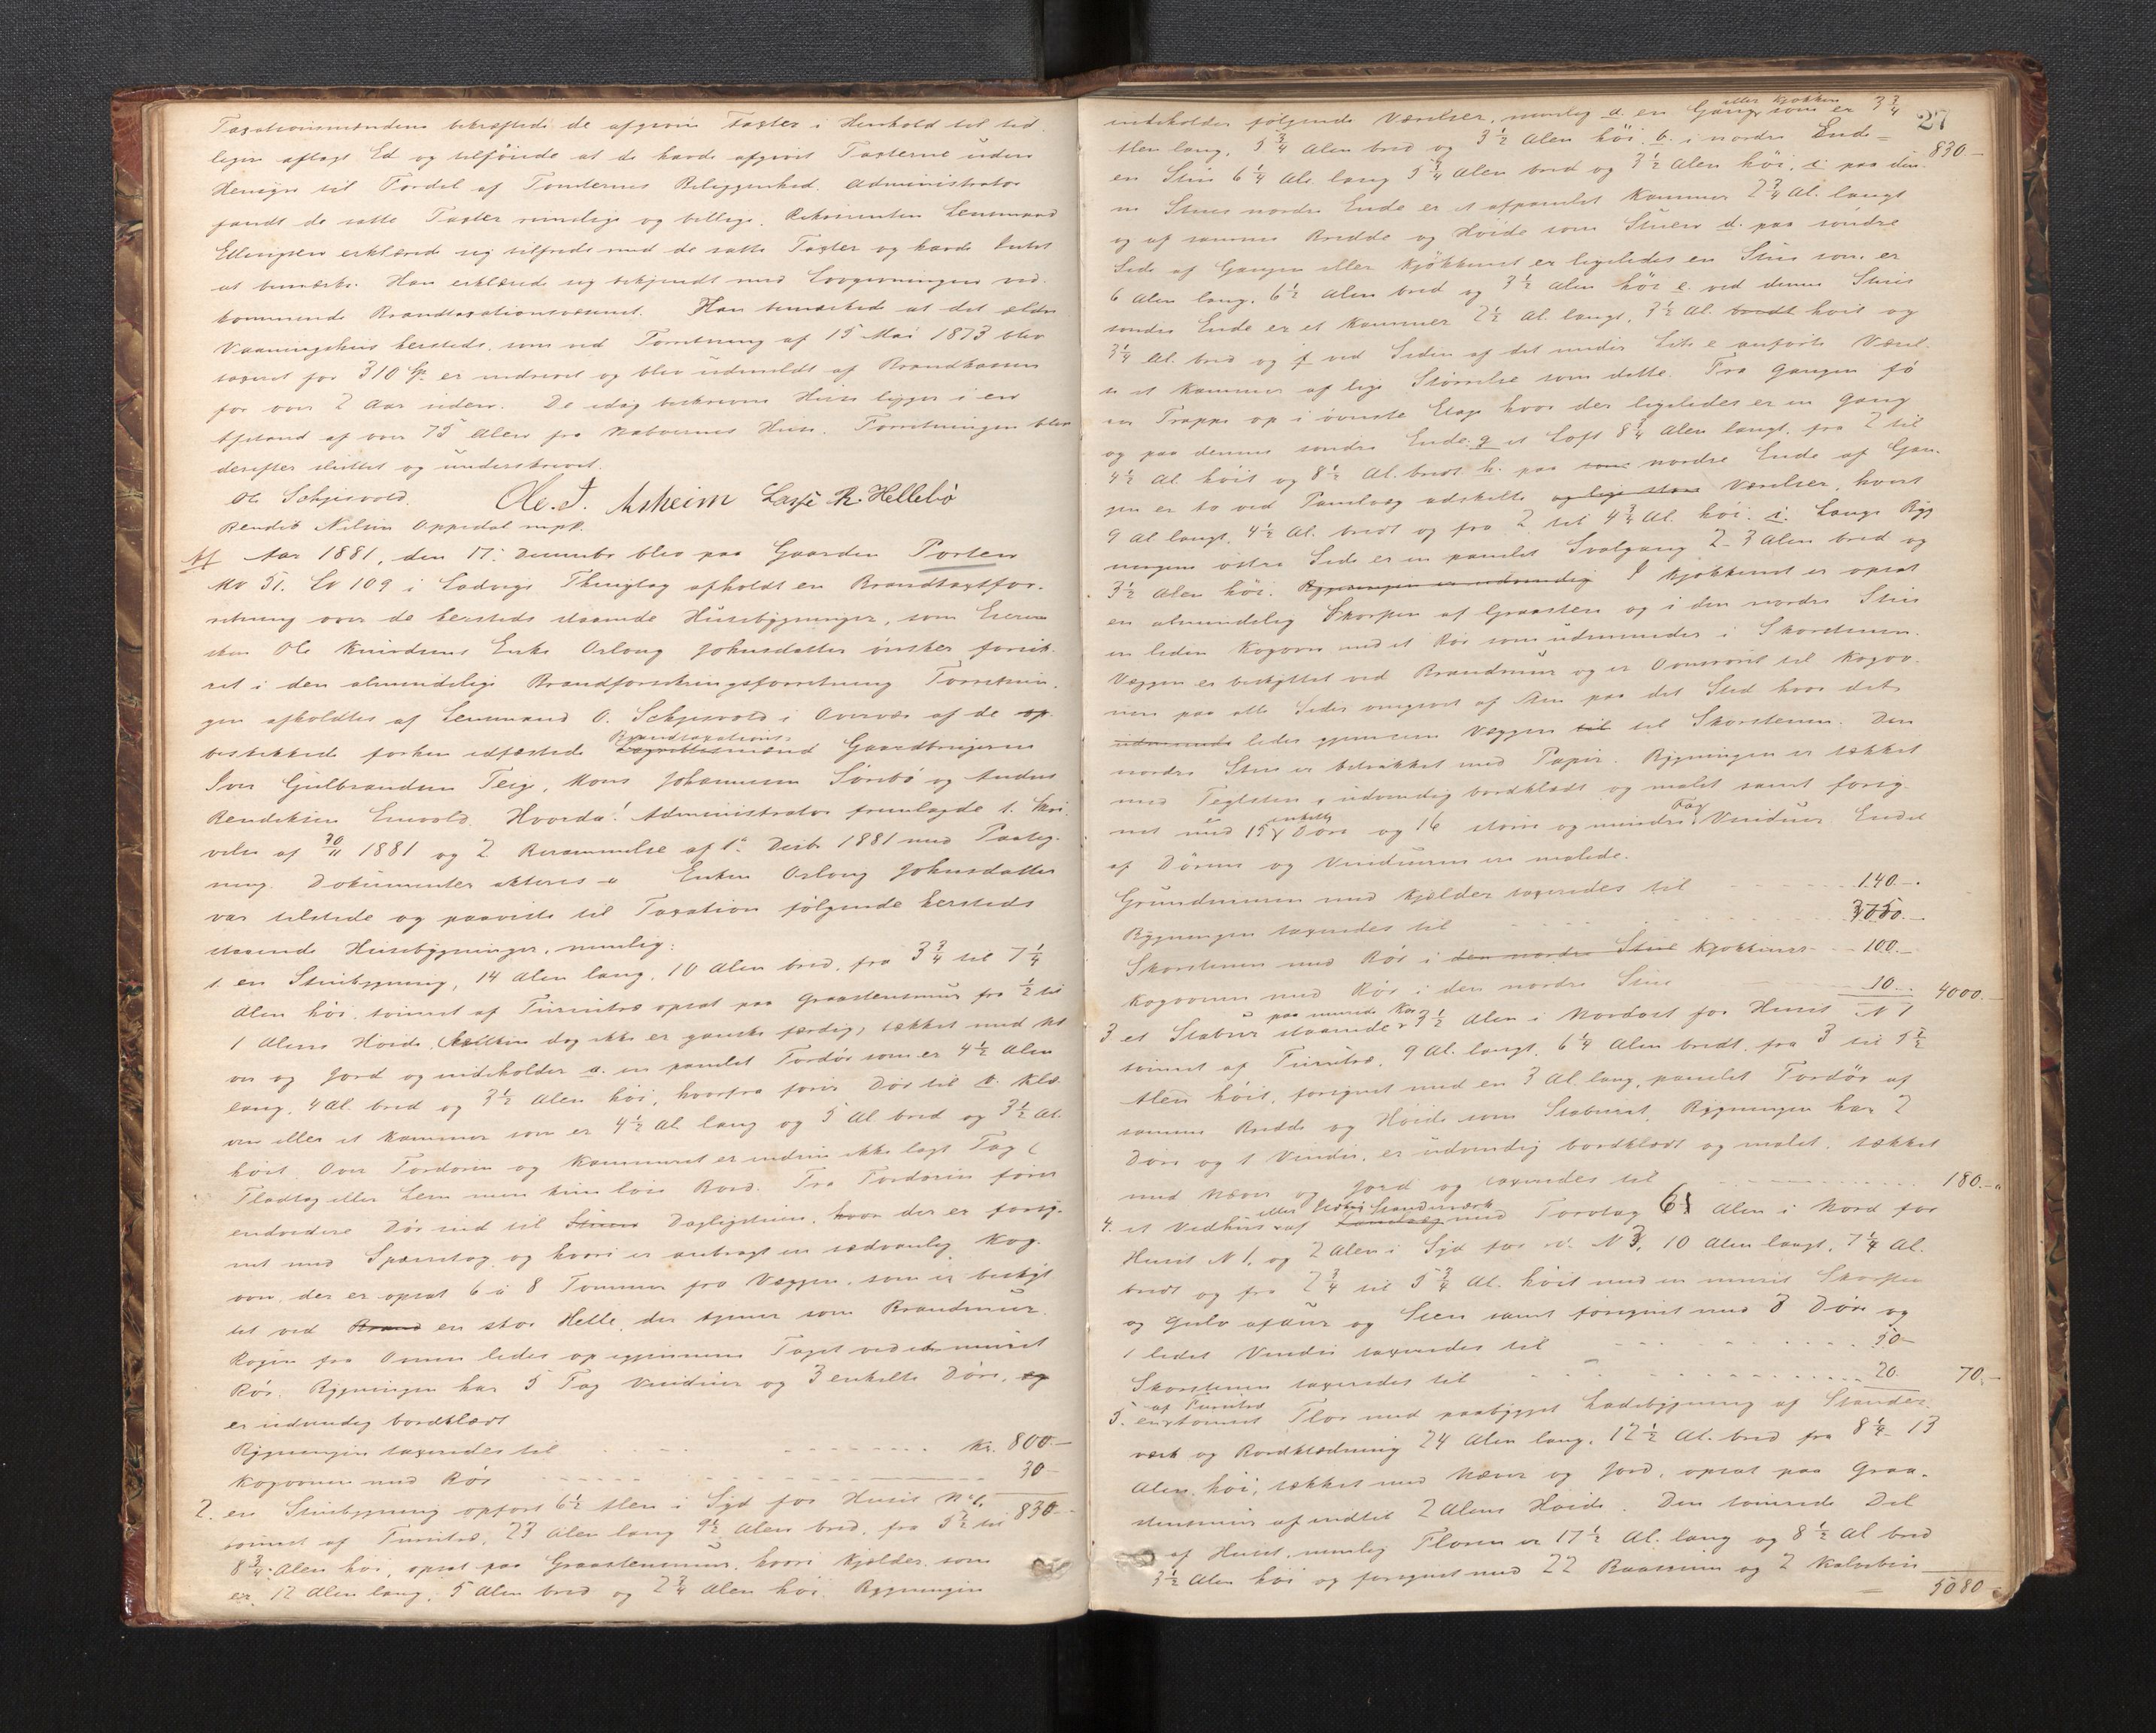 Taxationsmændene bekræftede de afgivne Taxter i Henhold til tid-
ligere aflagt Ed og tilføiede at de havde afgivet Taxterne uden
Hensyn til Fordel af Tomternes Beliggenhed. Administrator
fandt de satte Taxter rimelige og billige. Rekvirenten Lensmand
Ellingsen erklærede sig tilfreds med de satte Taxter og havde Intet
at bemærke. Han erklærede sig bekjendt med Lovgivningen ved-
kommende Brandtaxationsvæsenet. Han bemærkede at det ældre
Vaaningshus hersteds, som ved Forretning af 15 Mai 1873 blev
taxeret for 310 Sp. er nedrevet og blev udmeldt af Brandkassen
for over 2 Aar siden. De idag beskrevne Huse ligger i en
Afstand af over 75 Alen fra Naboernes Huse. Forretningen blev
derefter sluttet og underskrevet.
Ol. Schjesvold. Ole. J. Asheim Lasse R. Hellebö
Bendik Nilsen Oppedal mpP.
Aar 1881, den 17. Decembr blev paa Gaarden Porten
No 51. Lb 109 i Ladvigs Thinglag afholdt en Brandtaxtfor-
retning over de hersteds staaende Husebygninger, som Eieren
Ole Knudsens Enke Oslaug Johnsdatter ønsker forsik-
ret i den almindelige Brandforsikringsforretning Forretnin-
gen afholdtes af Lensmand O. Schjesvold i Overvær af de op-
beskikkede forhen edfæstede Brandtaxationsmænd Gaardbrugerne
Iver Gulbrandsen Teige, Mons Johannesen Sørebö og Anders
Bendiksen Enevold. Hvorda! Administrator fremlagde 1. Skri-
velse af 30/11 1881 og 2 Berammelse af 1ste Decbr 1881 med Paateg-
ning. Dokumenter akteres. Enken Oslaug Johnsdatter
var tilstede og paaviste til Taxation følgende hersteds
staaende Husebygninger, nemlig:
1 en Stuebygning, 14 Alen lang, 10 Alen bred, fra 3 3/4 til 7 1/4
Alen høi, tømret af Furutræ opsat paa Graastensmur fra 1/2 til
1 Alens Høide, hvilken dog ikke er ganske færdig, tækket med Næ-
ver og Jord og indeholder a. en panelet Fordør som er 4 1/2 Alen
lang, 4 Al. bred og 3 1/2 Alen høi, hvorfra fører Dør til b. Klæ-
ven eller et Kammer som er 4 1/2 Al lang og 5 Al bred og 3 1/2 Al.
høit Over Fordøren og Kammeret er endnu ikke lagt Tag (
Fladtag eller Lem men kun løse Bord. Fra Fordøren fører
endvidere Dør ind til Stuen Dagligstuen, hvor der er forsy-
net med Sperretag og hvori er anbragt en sædvanlig Kog-
ovn, der er opsat 6 à 8 Tommer fra Væggen, som er beskyt-
tet ved Brand en stor Helle, der tjener som Brandmur.
Røgen fra Ovnen ledes op igjennem Taget ved et muret
Rør. Bygningen har 5 Fag Vinduer og 3 enkelte Døre, og
er udvendig bordklædt
Bygningen taxeredes til Kr. 800.-
Kogovnen med Rør 30-
830-
2. en Stuebygning opført 6 1/2 Alen i Syd for Huset No 1.
tømret af Furutræ, 23 Alen lang 9 1/2 Alen bred, fra 5 1/2 til
8 3/4 Alen høi, opsat paa Graastensmur, hvori Kjelder, som
er 12 Alen lang, 5 Alen bred og 2 3/4 Alen høi. Bygningen
27
indeholder følgende Værelser, nemlig a. en Gang eller Kjøkken som er 3 3/4
Alen lang, 5 3/4 Alen bred og 3 1/2 Alen höi. b. i nordre Ende 830-
en Stue 6 1/4 Ale. lang 5 3/4 Alen bred og 3 1/2 Alen høi, c. paa den-
ne Stues nordre Ende er et afpanelet Kammer 2 3/4 Al. langt
og af samme Bredde og Høide som Stuen d. paa søndre
Side af Gangen eller Kjøkkenet er ligeledes en Stue som er
6 Alen lang, 6 1/2 Alen bred og 3 1/2 Alen høi e. ved denne Stues
søndre Ende er et Kammer 2 1/2 Al. langt, 3 1/2 Al. bredt høit og
3 1/4 Al. bred og f ved Siden af det under Lite e anførte Værel-
se et Kammer af lige Størrelse som dette. Fra Gangen fö
en Trappe op i øverste Etage hvor der ligeledes er en Gang
og paa dennes søndre Ende g et Loft 8 3/4 Alen langt, fra 2 til
4 1/2 Al høit og 8 1/2 Al. bredt h. paa som nordre Ende af Gan-
gen er to ved Panelvæg adskilte og lige store Værelser, hvert
9 Al langt, 4 1/2 Al. bredt og fra 2 til 4 3/4 Al. høi. i. Langs Byg-
ningens østre Side er en panelet Svalgang 2-3 Alen bred og
3 1/2 Alen høi. Bygningen er udvendig I Kjøkkenet er opsat
en almindelig Skorsten af Graasten og i den nordre Stue
en liden Kogovn med et Rør som udmunder i Skorstenen.
Væggen er beskyttet ved Brandmur og er Ovnsrøret til Kogov-
nen paa alle Sider omgivet af Sten paa det Sted hvor det
udmunde ledes gjennem Væggen til til Skorstenen. Den
nordre Stue er betrukket med Papir. Bygningen er tækket
med Teglsten, udvendig bordklædt og malet samt forsy-
net med 15 enkelte Døre og 16 større og mindre Fag Vinduer. Endel
af Dørene og Vinduerne ere malede.
Grundmuren med Kjælder taxeredes til 140.-
Bygningen taxeredes til 3750.-
Skorstenen med Rør i den nordre Stue Kjøkkenet 100.-
Kogovnen med Rør i den nordre Stue 10.- 4000.-
3 et Stabur paa murede Kar staaende 3 1/2 Alen i Nordost for Huset N 1
tømret af Furutræ, 9 Al. langt, 6 1/4 Alen bredt, fra 3 til 5 1/2
Alen høit, forsynet med en 3 Al. lang, panelet Fordør af
samme Bredde og Høide som Staburet. Bygningen har 2
Døre og 1 Vindu, er udvendig bordklædt og malet, tækket
med Næver og Jord og taxeredes til 180.-
4. et Vedhus eller af Standerværk med Torvtag 6 Alen i Nord for
Huset N 1. og 2 Alen i Syd for N 3, 10 Alen langt, 7 1/4 Al.
bredt og fra 2 3/4 til 5 3/4 Al. høit med en muret Skorsten
og Gulv af Aur og Sten samt forsynet med 3 Døre og
1 lidet Vindu taxeredes til 50-
Skorstenen taxeredes til 20. 70.-
5. en af Furutræ tømret Flor med paabygget Ladebygning af Stander-
værk og Bordklædning 24 Alen lang, 12 1/2 Al. bred fra 8 1/4 - 13
Alen høi, tækket med Næver og Jord, opsat paa Graa-
stensmur af indtil 2 Alens Høide. Den tømrede Del
af Huset, nemlig Floren er 17 1/2 Al. lang og 8 1/2 Al bred
3 1/2 Alen høi og forsynet med 22 Baasrum og 2 Kalvebin-
5080